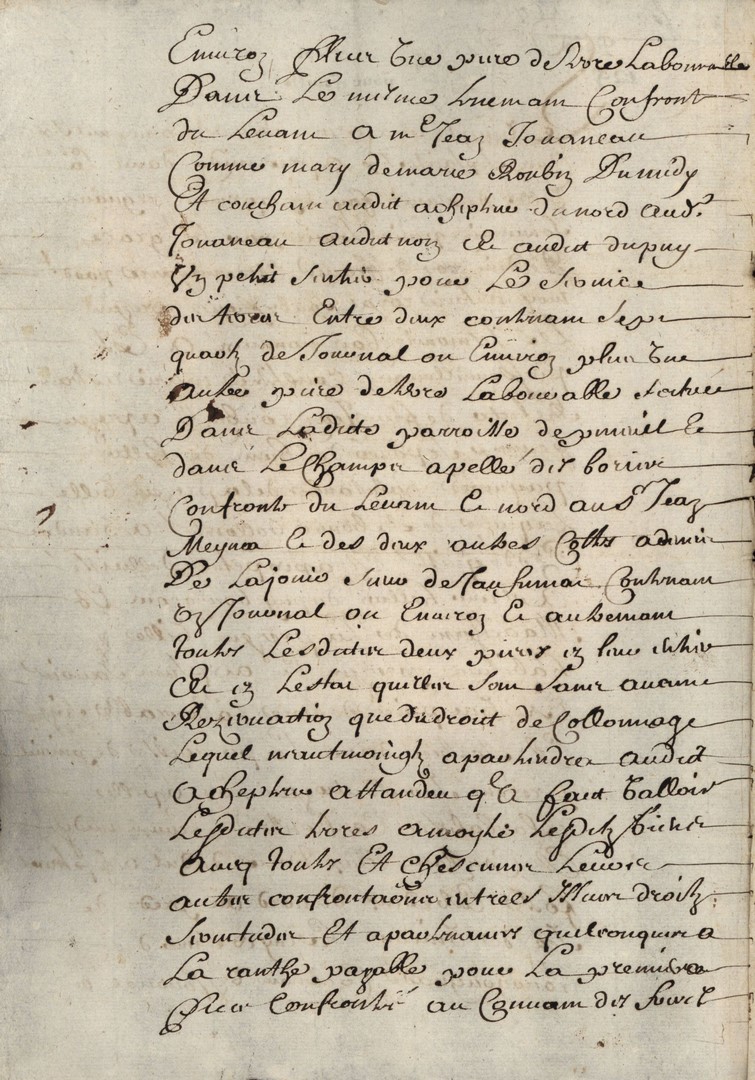 Enuiron plus une piece de terre labourable
Dans le mesme tnemant Confront
du Levant a me Jean Jouaneau
Comme mary de marie Roubin Du midy
Et couchant audict achepteur du nord aud.t
Jouaneau audict nom Et audict dupuy
Un petit sentier pour le service
Entre deux contenant sept
quartz de Journal ou Enuiron plus Une
autre piece de terre Labourable scituée
Dans Ladicte parroisse de Et
dans Le Champ apellé des
Confronte du Levant Et nord au sr Jean
Et des deux autres Costes
De Lajonie sieur de Contenant
Un Journal ou Enuiron Et autrement
toutes Lesdictes deux pieces en leur entier
Et en Lestat quelles sont sans aucune
Reservation que du droict de Collonnage
Lequel neautmoingz apartiendra audict
achepteur attandeu qe a faict Valloir
Lesdictes terres a moytié Lesditz
avec toutes Et Chescunes Leurs
autres confrontaõns entrees Issues droitz
servitudes Et apartenances quelconques a
La ranthe payable pour La premiere
piece Confrontée au Couvant des